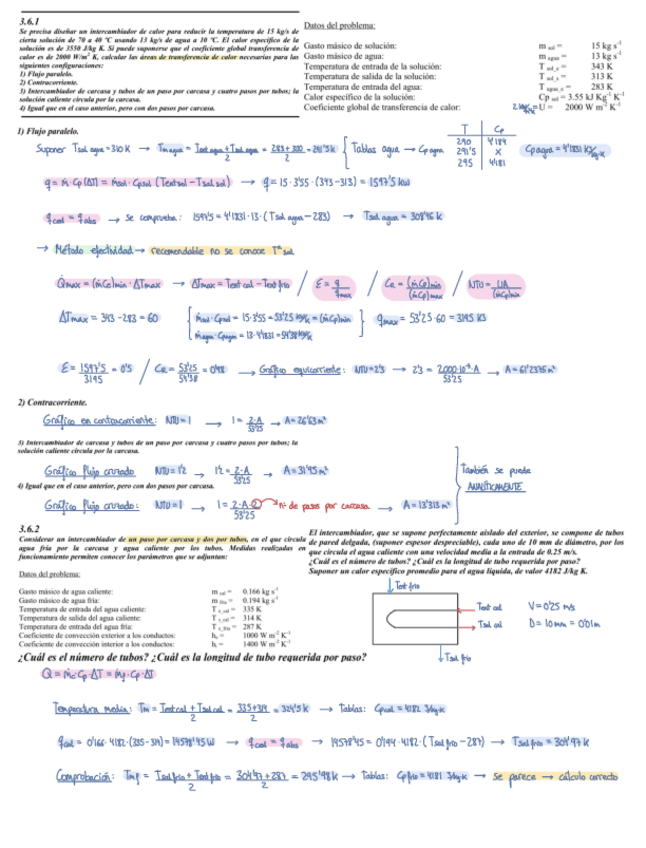 3.6.1
Se precisa diseñar un intercambiador de calor para reducir la temperatura de 15 kg/s de
cierta solución de 70 a 40 ºC usando 13 kg/s de agua a 10 ºC. El calor específico de la
solución es de 3550 J/kg K. Si puede suponerse que el coeficiente global transferencia de
calor es de 2000 W/m² K, calcular las áreas de transferencia de calor necesarias para las
siguientes configuraciones:
1) Flujo paralelo.
2) Contracorriente.
3) Intercambiador de carcasa y tubos de un paso por carcasa y cuatro pasos por tubos; la
solución caliente circula por la carcasa.
4) Igual que en el caso anterior, pero con dos pasos por carcasa.
Datos del problema:
Gasto másico de solución: m sol = 15 kg s⁻¹
Gasto másico de agua: m agua = 13 kg s⁻¹
Temperatura de entrada de la solución: T sol_e = 343 K
Temperatura de salida de la solución: T sol_s = 313 K
Temperatura de entrada del agua: T agua_e = 283 K
Calor específico de la solución: Cp sol = 3.55 kJ Kg⁻¹ K⁻¹
Coeficiente global de transferencia de calor: U = 2000 W m⁻² K⁻¹
1) Flujo paralelo.
Suponer Tsal agua = 310 K → Tm agua = (Tent agua + Tsal agua)/2 = /2 = 291'5 K { Tablas agua → Cp agua
T Cp
290 4'184
291'5 X
295 4'181
Cp agua = 4'1831 KJ/kg·K
q = ṁ·Cp (ΔT) = ṁsol·Cpsol (Tent sol − Tsal sol) → q = 15·3'55·(343−313) = 1597'5 kW
qced = qabs → se comprueba: 1597'5 = 4'1831·13·(Tsal agua − 283) → Tsal agua =
→ Método efectividad → recomendable no se conoce Tª sal
Q̇max = (ṁCp)min·ΔTmax → ΔTmax = Tent cal − Tent frio / ε = q/qmax / CR = (ṁCp)min/(ṁCp)max / NTU = UA/(ṁCp)min
ΔTmax = 343 − 283 = 60 { ṁsol·Cpsol = 15·3'55 = 53'25 kW/K = (ṁCp)min
ṁagua·Cpagua = 13·4'1831 = 54'38 kW/K } qmax = 53'25·60 = 3195 KJ
ε = 1597'5/3195 = 0'5 / CR = 53'25/54'38 = 0'98 → Gráfico equicorriente: NTU = 2'3 → 2'3 = 2000·10⁻³·A/53'25 → A = 61'2375 m²
2) Contracorriente.
Gráfico en contracorriente: NTU = 1 → 1 = 2·A/53'25 → A = 26'63 m²
3) Intercambiador de carcasa y tubos de un paso por carcasa y cuatro pasos por tubos; la
solución caliente circula por la carcasa.
Gráfico flujo cruzado NTU = 1'2 → 1'2 = 2·A/53'25 → A = 31'95 m²
4) Igual que en el caso anterior, pero con dos pasos por carcasa.
Gráfico flujo cruzado: NTU = 1 → 1 = 2·A·2/53'25 → nº de pasos por carcasa → A = 13'313 m²
También se puede
ANALÍTICAMENTE
3.6.2
Considerar un intercambiador de un paso por carcasa y dos por tubos, en el que circula
agua fría por la carcasa y agua caliente por los tubos. Medidas realizadas en
funcionamiento permiten conocer los parámetros que se adjuntan:
El intercambiador, que se supone perfectamente aislado del exterior, se compone de tubos
de pared delgada, (suponer espesor despreciable), cada uno de 10 mm de diámetro, por los
que circula el agua caliente con una velocidad media a la entrada de 0.25 m/s.
¿Cuál es el número de tubos? ¿Cuál es la longitud de tubo requerida por paso?
Suponer un calor específico promedio para el agua líquida, de valor 4182 J/kg K.
Datos del problema:
Gasto másico de agua caliente: m cal = 0.166 kg s⁻¹
Gasto másico de agua fría: m fría = 0.194 kg s⁻¹
Temperatura de entrada del agua caliente: T e_cal = 335 K
Temperatura de salida del agua caliente: T s_cal = 314 K
Temperatura de entrada del agua fría: T e_fría = 287 K
Coeficiente de convección exterior a los conductos: hₑ = 1000 W m⁻² K⁻¹
Coeficiente de convección interior a los conductos: hᵢ = 1400 W m⁻² K⁻¹
Tent frio
Tent cal
Tsal cal
Tsal frio
V = 0'25 m/s
D = 10 mm = 0'01 m
¿Cuál es el número de tubos? ¿Cuál es la longitud de tubo requerida por paso?
Q̇ = ṁc·Cp·ΔT = ṁf·Cp·ΔT
Temperatura media: Tm = (Tent cal + Tsal cal)/2 = (335+314)/2 = 324'5 K → Tablas: Cpcal = 4182 J/kg·K
qced = 0'166·4182·(335−314) = 14578'45 W → qced = qabs → 14578'45 = 0'194·4182·(Tsal frio − 287) → Tsal frio = 304'97 K
Comprobación: Tmf = (Tsal frio + Tent frio)/2 = (304'97 + 287)/2 = 295'98 K → Tablas: Cp frio = 4181 J/kg·K → se parece → cálculo correcto